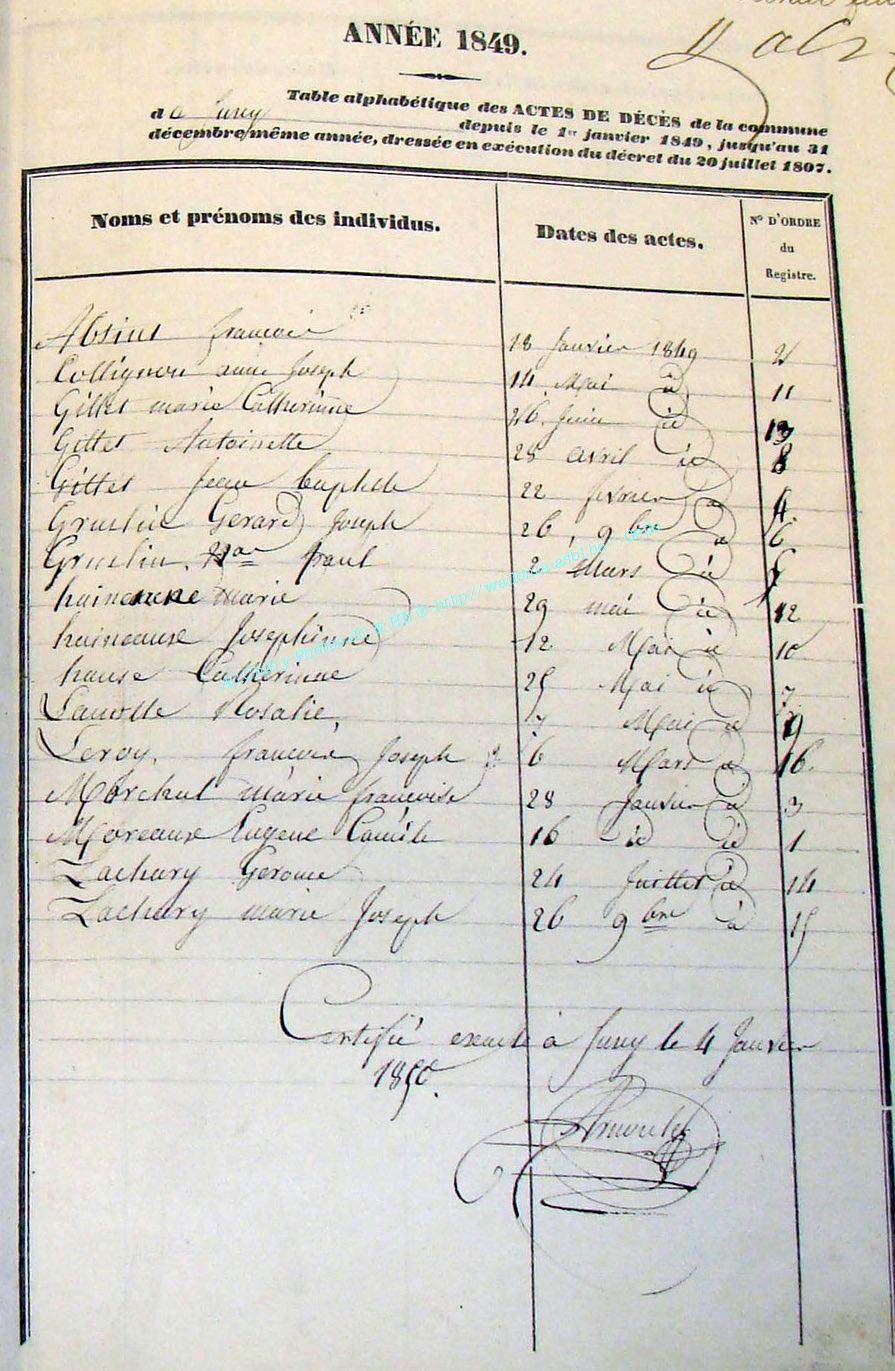 ANNÉE 1849.
Table alphabétique des ACTES DE DÉCÈS de la commune
d a Jusy depuis le 1er janvier 1849, jusqu'au 31
décembre même année, dressée en exécution du décret du 20 juillet 1807.
Noms et prénoms des individus. Dates des actes. N° D'ORDRE du Registre.
Absint francois 18 Janvier 1849 2
Collignon anne Joseph 14 Mai id 11
Gillet marie Catherinne 26 Juin id 13
Gillet Antoinette 28 avril id 8
Gillet Jean baptiste 22 fevrier id 4
Gruslin Gerard Joseph 26 9bre id 6
Gruslin paul 2 Mars id 5
marie 29 mai id 12
haineause Josephinne 12 Mai id 10
hause Catherinne 25 Mai id 7
Lanotte Rosalie 7 Mai id 9
Leroy francois Joseph 6 Mars id 16
Morchul marie francoise 28 Janvier id 3
Moreause Eugene Camile 16 id id 1
Zachary Gerome 24 Juillet id 14
Zachary marie Joseph 26 9bre id 15
Certifié exacte à Jusy le 4 Janvier
1850.